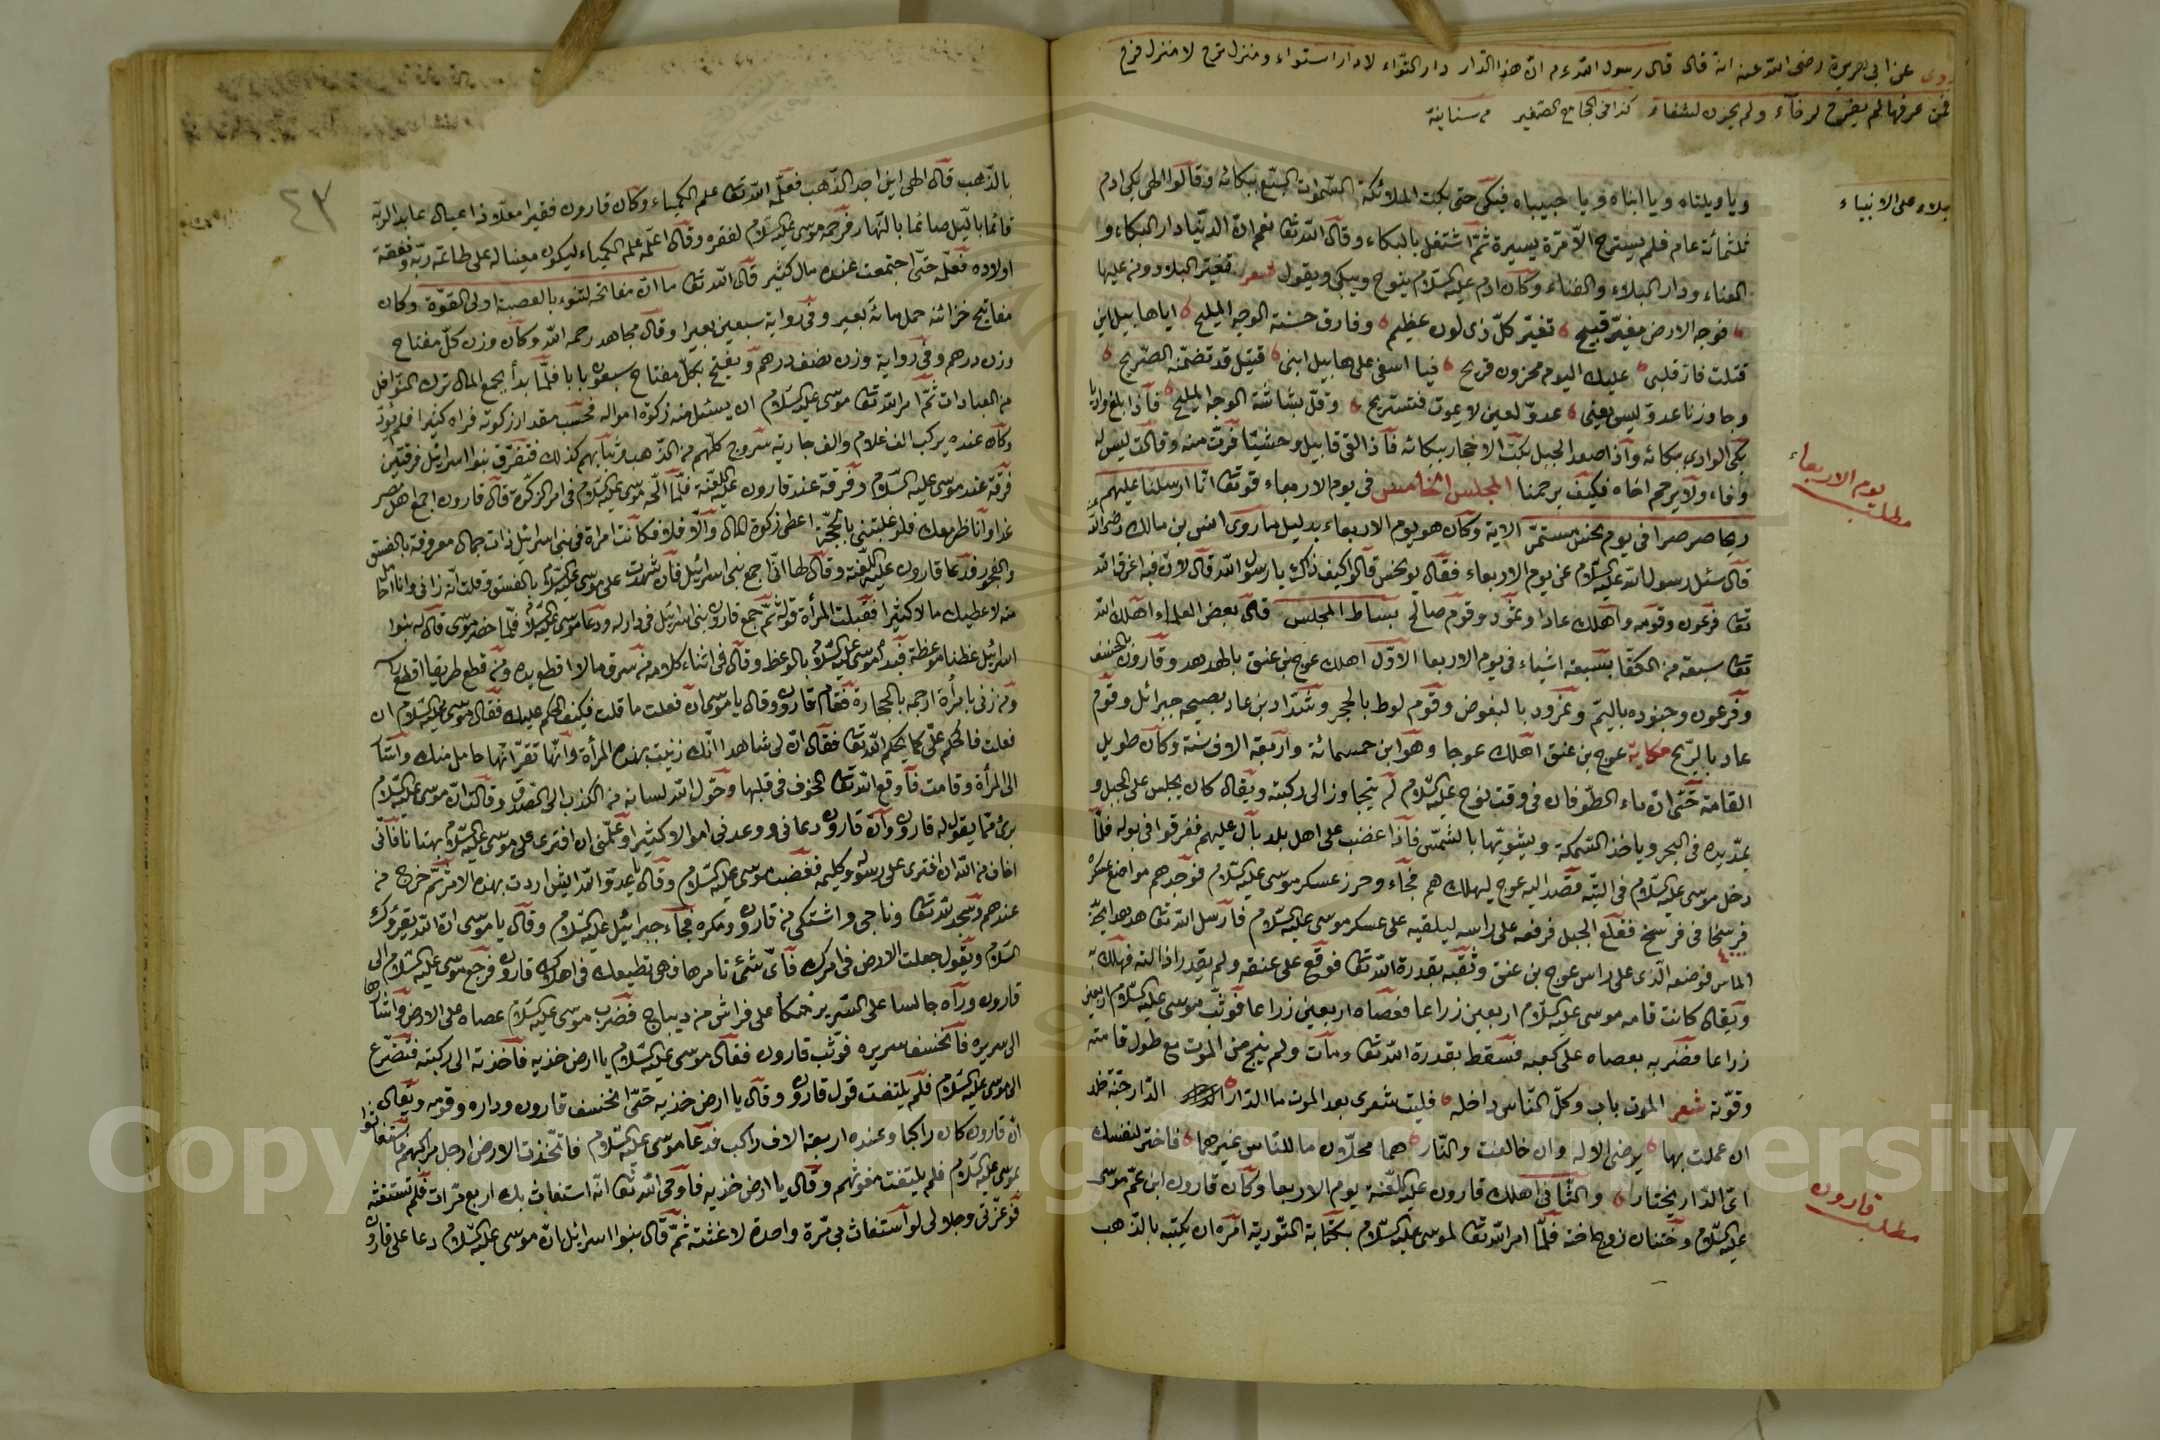 روى عن ابى هريرة رضى الله عنه انه قال قال رسول الله عم ان هذا الدار دار التواء لا دار استواء ومنزل ترح لا منزل فرح
فمن عرفها لم يفرح لرخاء ولم يحزن لشقاء كذا فى الجامع الصغير
بلاء على الانبياء
ويا ويلتاه ويا ابناه ويا حبيباه فيبكى حتى بكت الملائكة السموات السبع ببكائه وقالوا الهى بكى ادم
ثلثمائة عام فلم يسترح الا مرة يسيرة ثم اشتغل بالبكاء وقال الله تعا نعم ان الدنيا دار البكاء و
العناء ودار البلاء والفناء وكان ادم عليه السلام ينوح ويبكى ويقول شعر تغير البلاد ومن عليها
فوجه الارض مغبر قبيح تغير كل ذى لون عظيم وفارق حسنة الوجه المليح ايا هابيل ابن
قتلت فان قلبى عليك اليوم محزون قريح فيا اسفى على هابيل ابنى قتيل قد تضمنه الضريح
وجاوزنا عدو ليس يعنى عدو لعين لا يموت فنستريح وقل بشاشة الوجه المليح فاذا بلغ واديا
بكى الوادى ببكائه واذا صعد الجبل بكت الاحجار ببكائه فاذا لقى قابيل وحشيا فرت منه وقالت ليس له
وفاء ولا يرحم اخاه فكيف يرحمنا المجلس الخامس فى يوم الاربعاء قوله تعا انا ارسلنا عليهم
يوم الاربعاء
مطلب
ريحا صرصرا فى يوم نحس مستمر الاية وكان هو يوم الاربعاء بدليل ما روى انس بن مالك رضى الله عنه
قال سئل رسول الله عليه السلام عن يوم الاربعاء فقال يوم نحس قالوا كيف ذاك يا رسول الله قال لان فيه اغرق الله
تعا فرعون وقومه واهلك عادا وثمود وقوم صالح بساط المجلس قال بعض العلماء اهلك الله
تعا سبعة من الكفار بسبعة اشياء فى يوم الاربعا الاول اهلك عوج بن عنق بالهدهد وقارون بالخسف
وفرعون وجنوده باليم ونمرود بالبعوض وقوم لوط بالحجر وشداد بن عاد بصيحة جبرائل وقوم
عاد بالريح حكاية عوج بن عنق اهلك عوجا وهو ابن خمسمائة واربعة الاف سنة وكان طويل
القامة حتى ان ماء الطوفان فى وقت نوح عليه السلام لم يتجاوز الى ركبته ويقال كان يجلس على الجبل و
يمد يده فى البحر وياخذ السمكة ويشويها بالشمس فاذا غضب على اهل بلد بال عليهم فغرقوا فى بوله فلما
دخل موسى عليه السلام فى التيه قصد اليه عوج ليهلك هم فجاء وحرز عسكر موسى عليه السلام فوجدهم مواضع عسكره
فرسخا فى فرسخ فقلع الجبل فرفعه على راسه ليلقيه على عسكر موسى عليه السلام فارسل الله تعا هدهدا بحجر
الماس فوضعه الذى على راس عوج بن عنق وثقبه بقدرة الله تعا فوقع على عنقه ولم يقدر اذالته فهلك به
ويقال كانت قامه موسى عليه السلام اربعين زراعا فعصاه اربعين زراعا فوثب موسى عليه السلام اربعين
زراعا فضربه بعصاه على كعبه فسقط بقدرة الله تعا ومات ولم ينج من الموت مع طول قامته
وقوته شعر الموت باب وكل الناس داخله فليت شعرى بعد الموت ما الدار الدار جنة خلد
ان عملت بها يرضى الاله وان خالفت والنار هما محلان ما للناس غيرهما فاختر لنفسك
اى الدار يختار والثانى اهلك قارون عليه اللعنة يوم الاربعا وكان قارون ابن عم موسى
قارون
مطلب
عليه السلام وختنان زوج اخته فلما امر الله تعا لموسى عليه السلام بكتابة التورية امره ان يكتبه بالذهب
٤٣
بالذهب قال الهى اين اجد الذهب فعلمه الله تعا علم الكمياء وكان قارون فقيرا مقلا ذا عيال عابد الربه
قائما بالليل صائما بالنهار فرحمه موسى عليه السلام لفقره وقال اعلمه علم الكمياء ليكون معينا له على طاعة ربه ونفقة
اولاده فعلمه حتى اجتمعت عنده مال كثير قال الله تعا ما ان مفاتحه لتنوء بالعصبة اولى القوة وكان
مفاتيح خزائنه حمل مائة بعير وفى رواية سبعين بعيرا وقال مجاهد رحمه الله وكان وزن كل مفتاح
وزن درهم وفى رواية وزن نصف درهم ويفتح بكل مفتاح سبعون بابا فلما بدأ بجمع المال ترك النوافل
من العبادات ثم امر الله تعا موسى عليه السلام ان يسئل منه زكوة امواله فحسب مقدار زكوته فراه كثيرا فلم يؤد
وكان عنده يركب الف غلام والف جارية سروج كلهم من الذهب وثيابهم كذلك فتفرق بنوا اسرائيل فرقتين
فرقة عند موسى عليه السلام وفرقة عند قارون عليه اللعنة فلما الحه موسى عليه السلام فى امر الزكوة قال قارون اجمع اهل مصر
غدا وانا ظرهعك فلو غلبتنى بالحجة اعطى زكوة المال والا فلا فكانت امراة فى بنى اسرائيل ذات جمال معروفة بالفسق
والفجور فدعا قارون عليه اللعنة وقال لها انى اجمع بنى اسرائيل فان شهدت على موسى عليه السلام بالفسق وقلت انه زانى وانا حامل
منه لاعطيك مالا كثيرا فقبلت المرأة قوله ثم جمع قارون بنى اسرائيل فى داره ودعا موسى عليه السلام فلما حضر موسى قال له بنوا
اسرائيل عظنا موعظة فبدأ موسى عليه السلام بالوعظ وقال فى اثناء كلامه من سرق مالا اقطع يده ومن قطع طريقا اقطع
ومن زنى بامرأة ارجمه بالحجارة فقام قارون وقال يا موسى ان فعلت ما قلت فكيف الحكم عليك فقال موسى عليه السلام ان
فعلت فالحكم على كما يحكم الله تعا فقال ان لى شاهدا انك زنيت بهذه المرأة وانها تقر انها حامل منك واشار
الى المرأة وقامت فاوقع الله تعا الخوف فى قلبها وحول الله لسانه من الكذب الى الصدق وقالت ان موسى عليه السلام
برئ مما يقول له قارون وان قارون دعانى ووعدنى اموالا كثيرا وعلمنى ان افترى على موسى عليه السلام بهتانا فانى
اخاف من الله ان افترى على رسوله وكليمه فغضب موسى عليه السلام وقال يا عدو الله ايش اردت بهذه الامر ثم خرج من
عندهم وسجد لله تعا وناجى واشتكى من قارون ومكره فجاء جبرائيل عليه السلام وقال يا موسى ان الله يقرؤك
السلام ويقول جعلت الارض فى امرك فاى شئ تامرها فهى تطيعك فى اهلاك قارون فرجع موسى عليه السلام الى
قارون وراه جالسا على السرير متكأ على فراش من ديباج فضرب موسى عليه السلام عصاه على الارض واشارها
الى سريره فانخسف سريره فوثب قارون فقال موسى عليه السلام يا ارض خذيه فاخذته الى ركبته فتضرع
الى موسى عليه السلام فلم يلتفت قول قارون وقال يا ارض خذيه حتى انخسف قارون وداره وقومه ويقال
ان قارون كان راكبا وعنده اربعة الاف راكب فدعا موسى عليه السلام فاتخذت الارض ارجل مراكبهم فاستغاثوا
بموسى عليه السلام فلم يلتفت مغوثهم وقال يا ارض خذيه فاوحى الله تعا انه استغاث بك اربع مرات فلم تستغثه
فوعزتى وجلالى لو استغاث بى مرة واحدة لاغثته ثم قال بنوا اسرائيل ان موسى عليه السلام دعا على قارون
Copyright © King Saud University